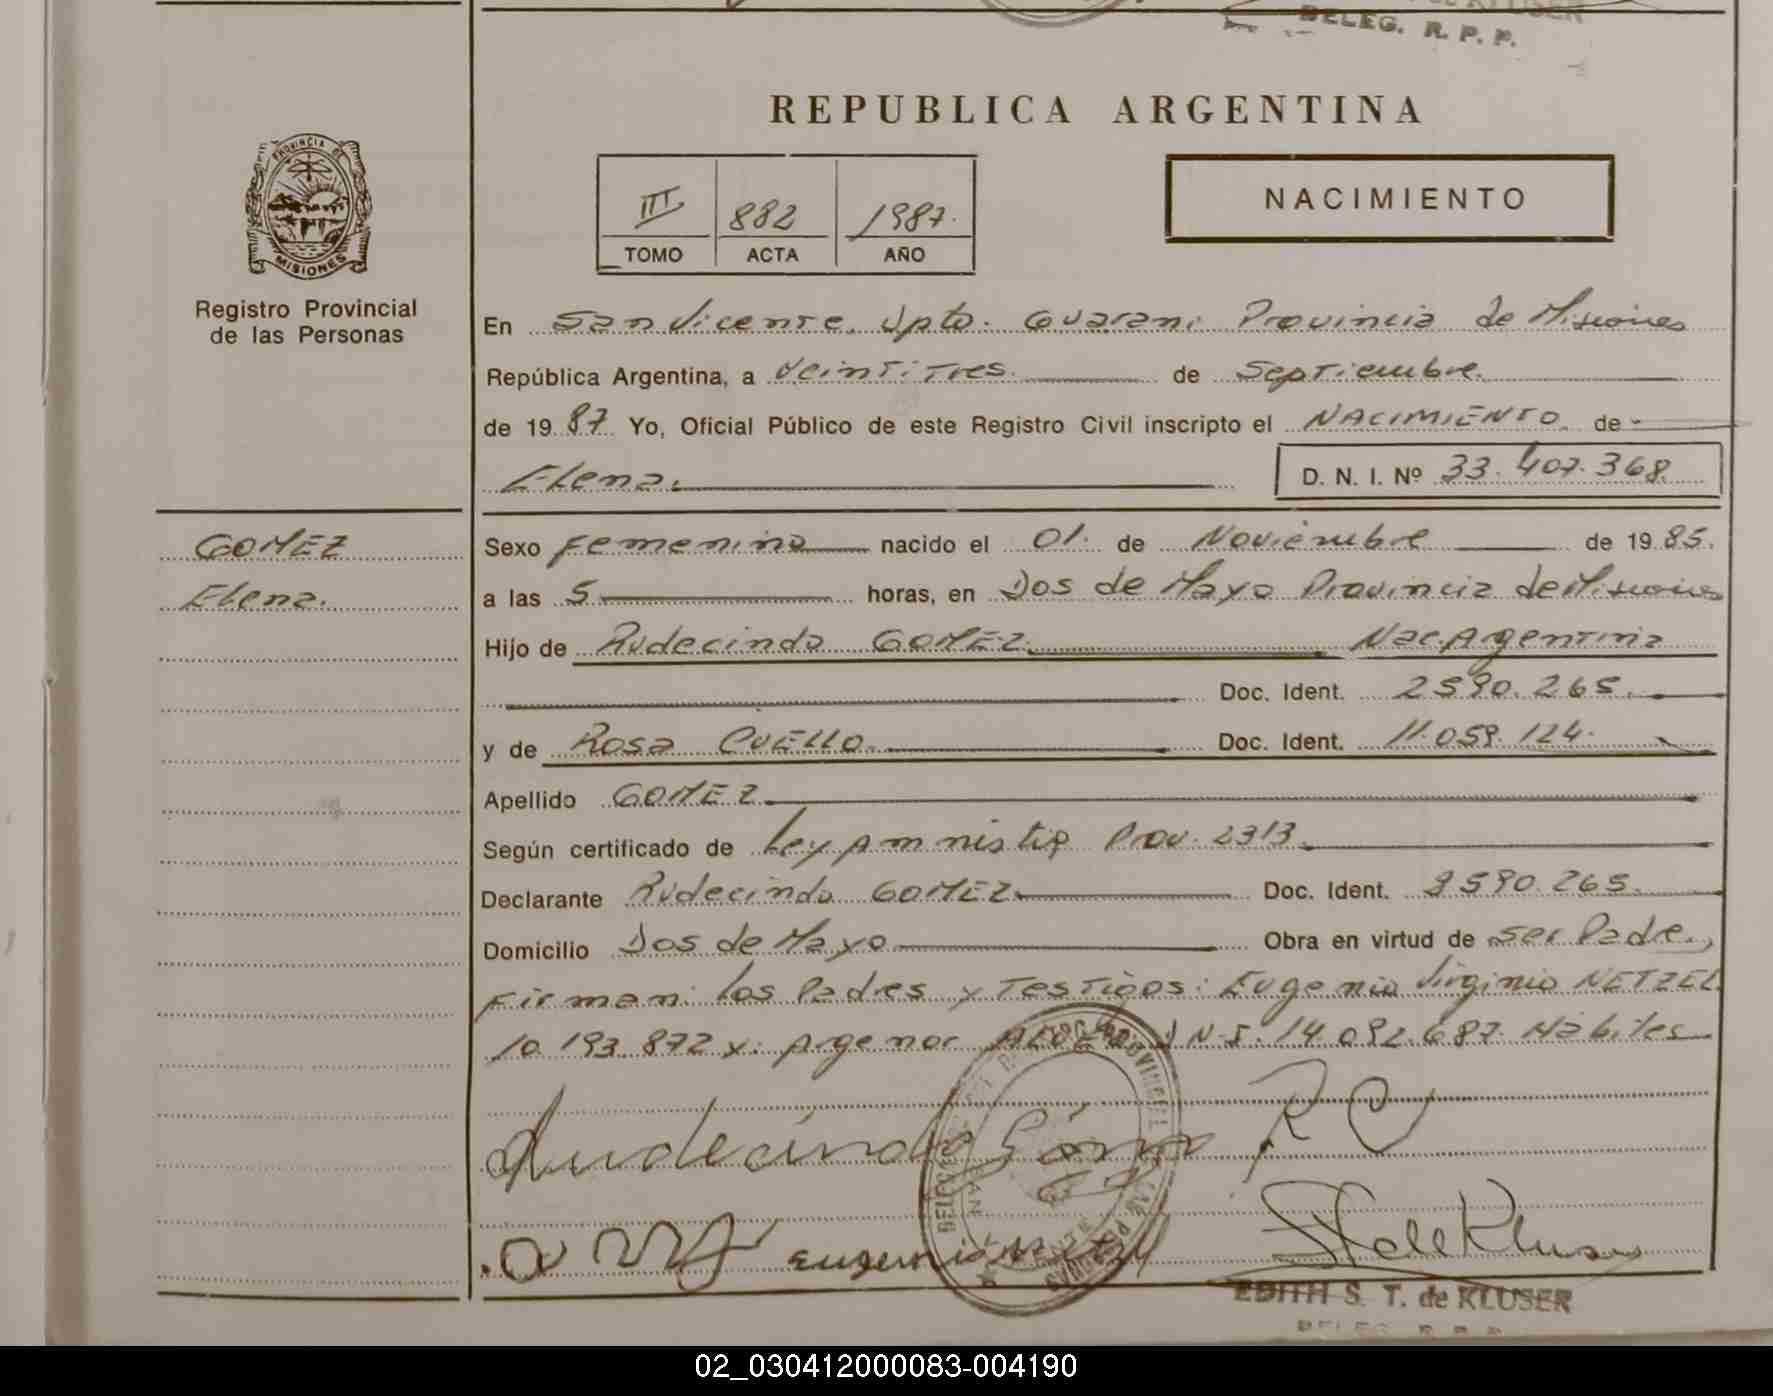 DELEG. R. P. P.
REPUBLICA ARGENTINA
PROVINCIA DE
MISIONES
Registro Provincial
de las Personas
III 882 1987.
TOMO ACTA AÑO
NACIMIENTO
En San Vicente, Dpto. Guarani Provincia de Misiones
República Argentina, a Veintitres de Septiembre
de 19 87 Yo, Oficial Público de este Registro Civil inscripto el NACIMIENTO de
Elena. D. N. I. Nº 33.407.368.
GOMEZ
Elena.
Sexo Femenino nacido el 01. de Noviembre de 19 85.
a las 5 horas, en Dos de Mayo Provincia de Misiones
Hijo de Rudecindo GOMEZ. Nac. Argentina
Doc. Ident. 2590.265.
y de Rosa CUELLO. Doc. Ident. 11.059.124.
Apellido GOMEZ.
Según certificado de Ley Amnistia Prov. 2313.
Declarante Rudecindo GOMEZ Doc. Ident. 2590.265.
Domicilio Dos de Mayo Obra en virtud de ser Padre.,
Firman: los Padres y Testigos: Eugenio Virginio NETZEL
10.193.872 y: Argenor D N.I. 14.092.687. Hábiles
Rudecindo Gómez R C
Eugenio Netzel
EDITH S. T. de KLUSER
DELEG. R. P. P.
02_030412000083-004190